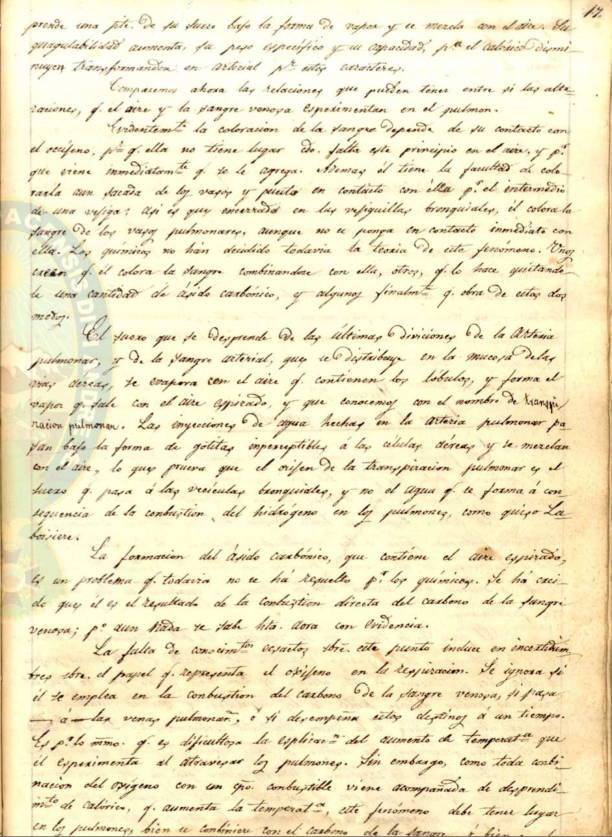 17
prende una pte. de su suero bajo la forma de vapor y se mezcla con el aire. Su
cuagulabilidad aumenta, su peso especifico y su capacidad, pa. el calórico dismi-
nuyen transformandose en arterial pr. estos caracteres.
Comparemos ahora las relaciones que pueden tener entre si las alte-
raciones, q. el aire y la sangre venosa esperimentan en el pulmon.
Evidentemte. la coloracion de la sangre depende de su contacto con
el ocsifeno, ps. q. ella no tiene lugar cdo. falta este principio en el aire, y pr.
que viene inmediatamte. q. se le agrega. Ademas él tiene la facultad de colo-
rarla aun sacada de los vasos y puesta en contacto con ella pr. el intermedio
de una vesiga; asi es que encerrado en las vesiguillas bronquiales, él colora la
sangre de los vasos pulmonares, aunque no se ponga en contacto inmediato con
ella. Los químicos no hán decidido todavia la teoria de este fenómeno. Unos
creen q. el colora la sangre combinandose con ella, otros, q. lo hace quitando-
le una cantidad de ácido carbónico, y algunos finalmte. q. obra de estos dos
modos.
El suero que se desprende de las últimas diviciones de la Arteria
pulmonar, y de la sangre arterial, que se distribuye en la mucosa de las
vias aereas, se evapora con el aire q. contienen los lóbulos, y forma el
vapor q. sale con el aire espirado, y que conocemos con el nombre de transpi-
racion pulmonar. Las inyecciones de agua hechas en la arteria pulmonar pa-
san bajo la forma de gotitas imperceptibles á las células aéreas y se mezclan
con el aire, lo que prueva que el orisen de la transpiracion pulmonar es el
suero q. pasa á las veciculas bronquiales, y no el agua q. se forma á con-
sequencia de la conbustion del hidrógeno en los pulmones, como quiso La-
boisiere.
La formacion del ácido carbónico, que contiene el aire espirado,
es un problema q. todavia no se há resuelto pr. los químicos. Se há crei-
do que él es el resultado de la conbustion directa del carbono de la sangre
venosa; po. aun nada se sabe hta. aora con evidencia.
La falta de conocimtos. ecsactos sbre. este punto induce en incertidum-
bres sbre. el papel q. representa el oxifeno en la respiracion. Se ignora si
él se emplea en la conbustion del carbono de la sangre venosa, si pasa
a las venas pulmonars., ó si desempeña estos destinos á un tiempo.
Es pr. lo mmo. q. es dificultosa la esplicacn. del aumento de temperatra. que
él esperimenta al atravesar los pulmones. Sin embargo, como toda conbi-
nacion del oxígeno con un cpo. conbustible viene acompañada de desprendi-
mto. de calórico, q. aumenta la temperatra., este fenómeno debe tener lugar
en los pulmones, bien se conbine con el carbono de la sangre